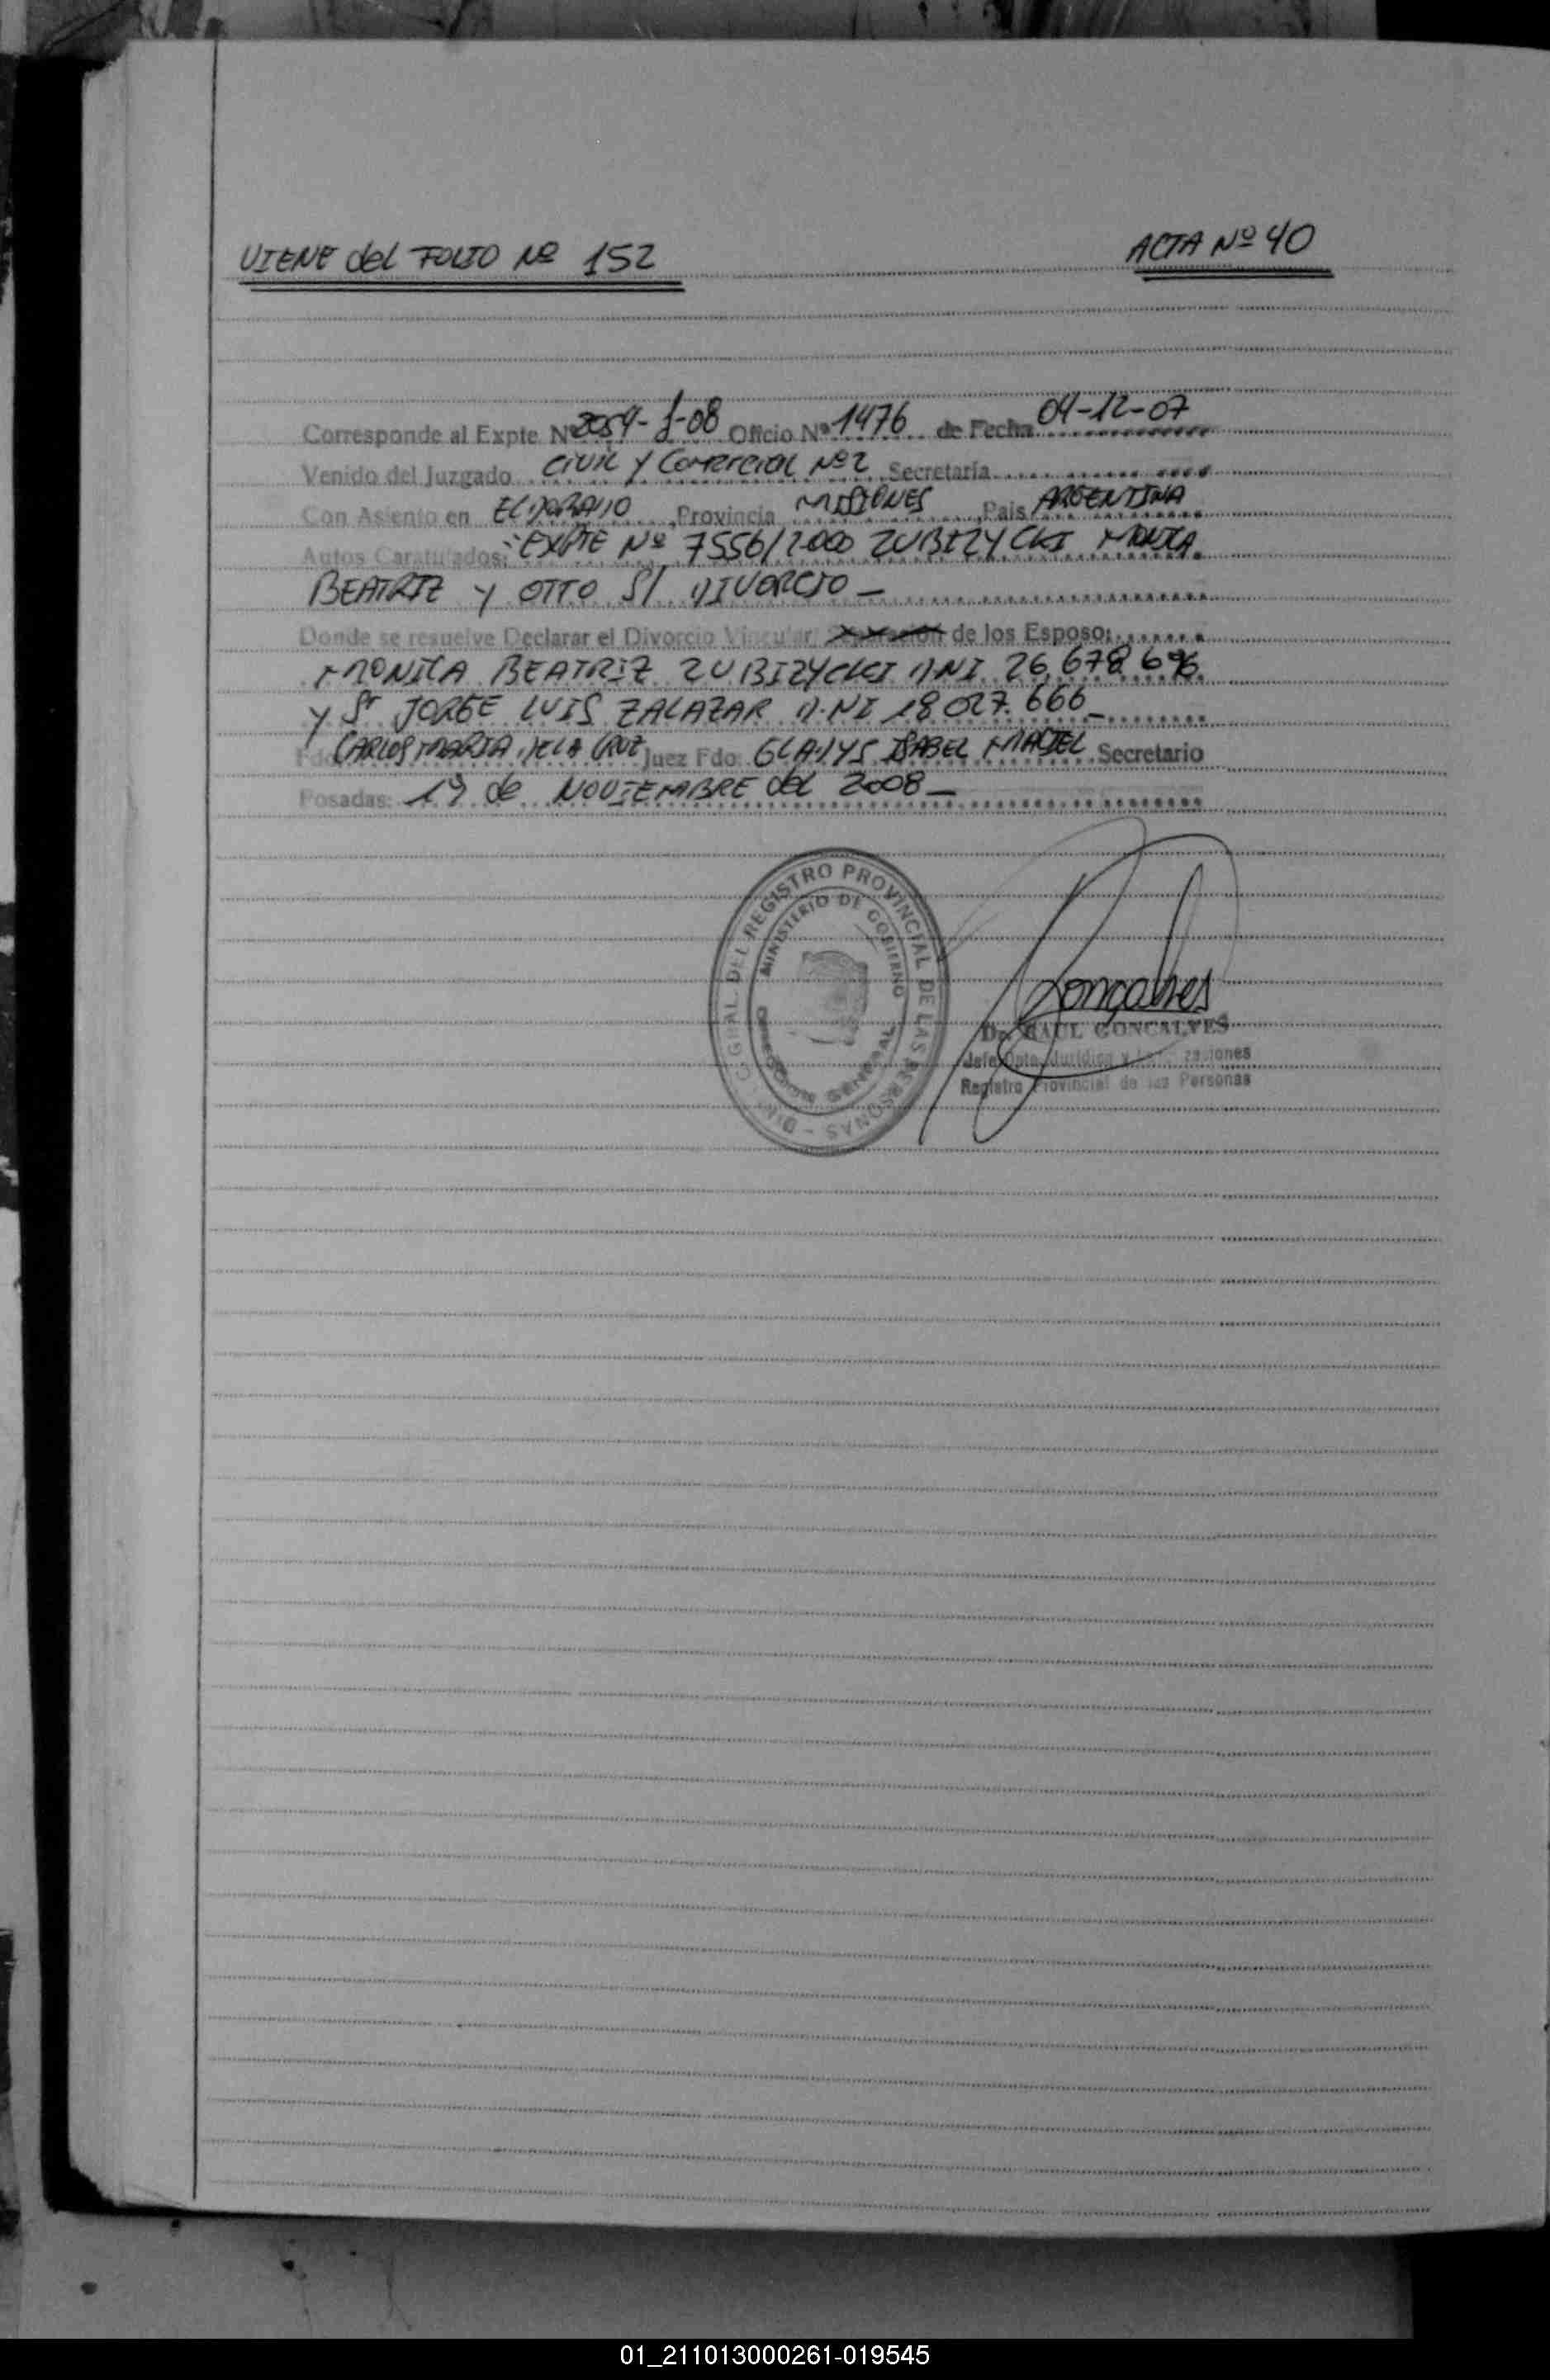 VIENE del FOLIO Nº 152
ACTA Nº 40
Corresponde al Expte Nº 2054-J-08 Oficio Nº 1476 de Fecha 04-12-07
Venido del Juzgado Civil y Comercial Nº 2 Secretaría
Con Asiento en ELDORADO Provincia MISIONES Pais ARGENTINA
Autos Caratulados: "EXPTE Nº 7556/2000 ZUBIZYCKI MONICA
BEATRIZ y OTTO S/ DIVORCIO -
Donde se resuelve Declarar el Divorcio Vincular de los Esposo:
MONICA BEATRIZ ZUBIZYCKI DNI 26,678 696
y Sr JORGE LUIS ZALAZAR D.NI 18 027. 666 -
Fdo CARLOS MARIA DE LA CRUZ Juez Fdo: GLADYS ISABEL MACIEL Secretario
Posadas: 19 de NOVIEMBRE del 2008 -
DIR. GRAL. DEL REGISTRO PROVINCIAL DE LAS PERSONAS -
MINISTERIO DE GOBIERNO
DIRECCION GENERAL
Gonçalves
Dr. RAUL GONCALVES
Jefe Dpto. Juridico y
Registro Provincial de las Personas
01_211013000261-019545